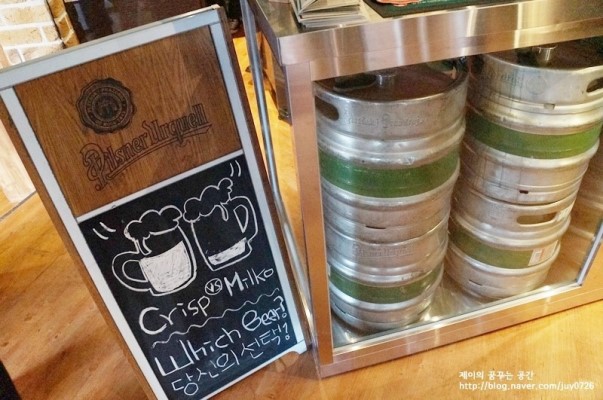 Pilsner Urquell
Crisp vs Milko
Which Beer?
당신의 선택!
제이의 꿈꾸는 공간
http://blog.naver.com/juy0726